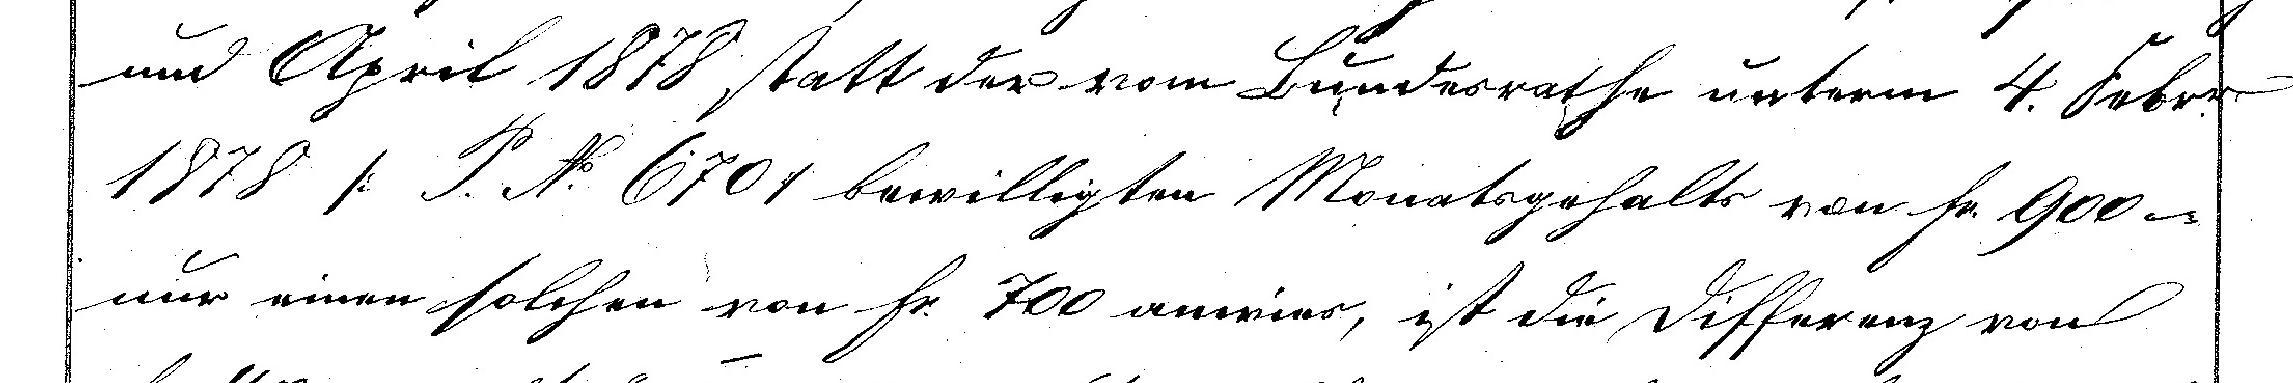 und April 1878 statt der vom Bundesrathe unterm 4. Febr.
1878 /: P. No. 6701 bewilligten Monatsgehalts von fr. 900 –
nur einen solchen von fr. 700 anwies, ist die Differenz von